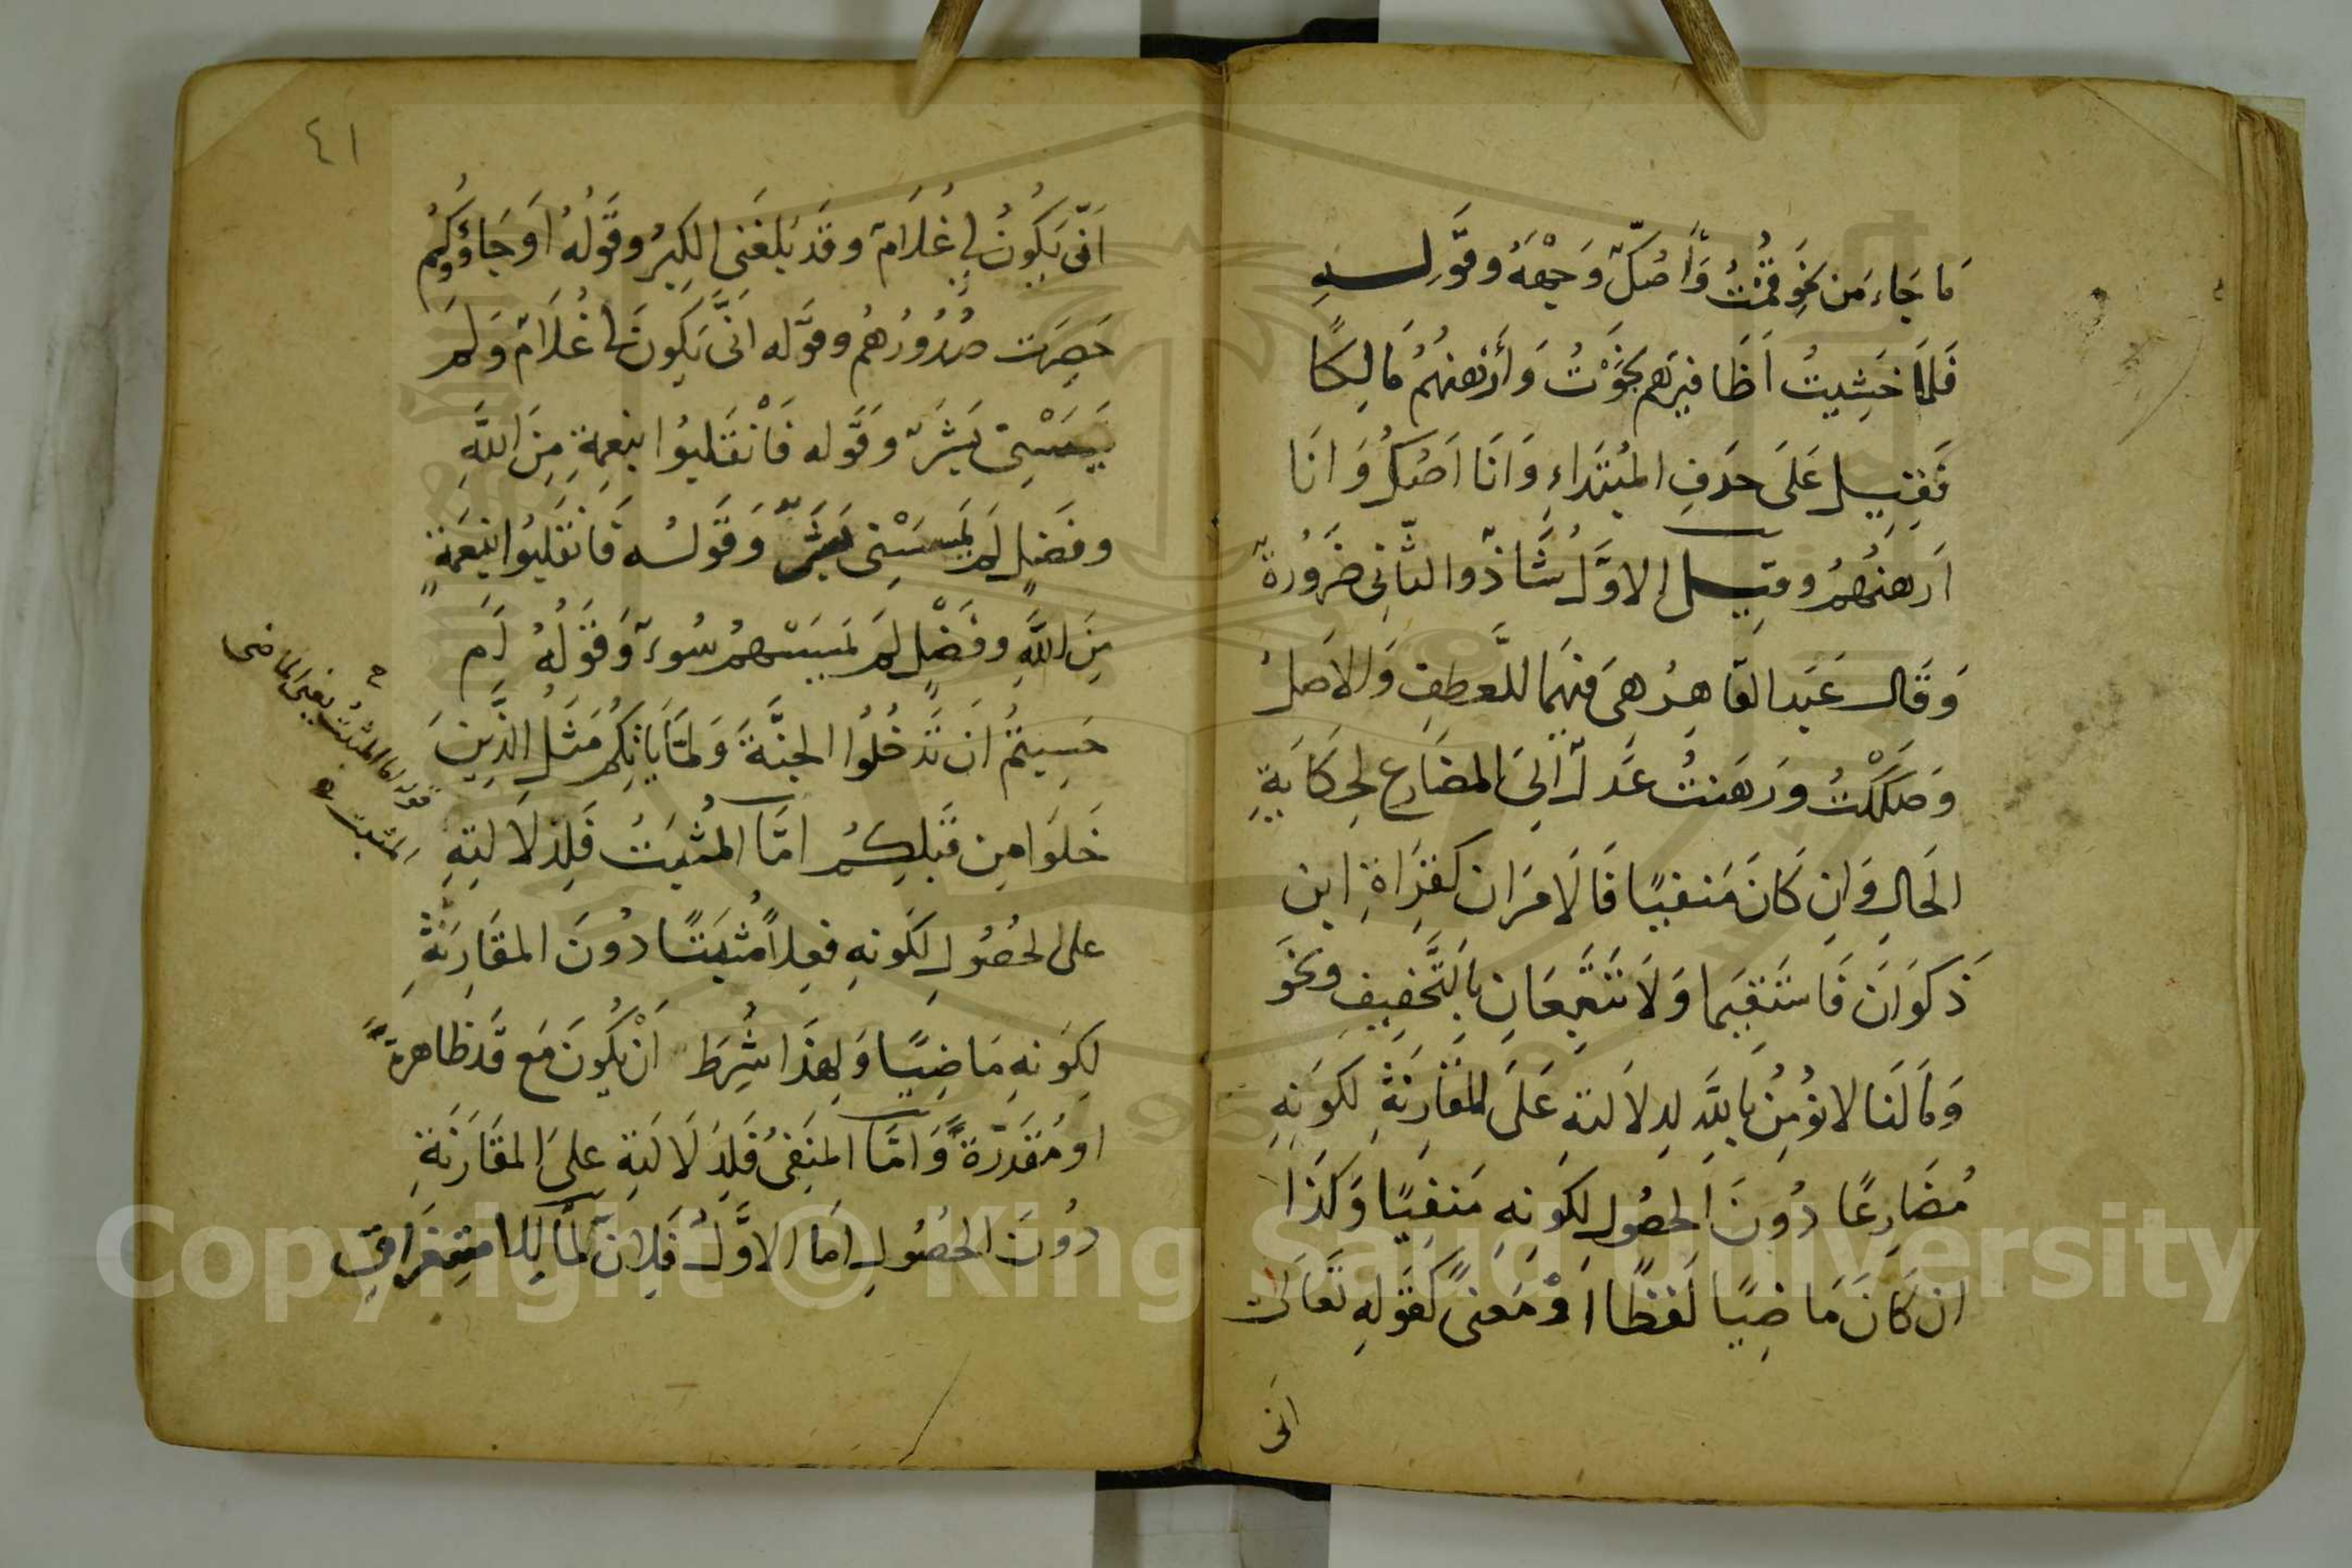 مَا جَاءَ مَن نَحوِ قمْتُ وَأصُكّ وَجْهَهُ وقَولِه
فَلمَّا خَشِيتُ أَظَافِيرَهم نجَوْتُ وَأَرْهَنهُمُ مَالِكًا
فَقِيل عَلىَ حذفِ المبُتَداءِ وَأنَا اَصُكُّ وَانَا
اَرهنُهُمُ وقيل الاوَّلُ شَّاذّ والثّانِى ضَرُورة
وَقَال عَبد القَاهِرُ هىَ فيهَما للَّعطفِ وَالاَصلُ
وَصَكَكْتُ وَرَهَنتُ عَدلَ اِلىَ المضَارِع لِحكَايةِ
الحَالِ وَان كَانَ مَنفيًا فَالاَمَران كقِرَاةِ ابن
ذَكوَانَ فَاستَقيَما وَلاَ تَتَّبِعَانِ بالتَّخفِيفِ ونحَوَ
وَمَا لَنا لا نؤُمِنُ بِاللَّهِ لدِلاَلتهِ عَلىَ المقَارنَةِ لكَوَنهِ
مُضَارِعًا دوُنَ الحصُولِ لكَونهِ مَنفيًا وَكَذَا
ان كَانَ مَاضِيًا لَفظًا اَوْ مَعَنىً كَقَولهِ تَعَالىَ
انى
٤١
اَنّى يَكُونُ لى غُلاَمٌ وقَد بَلغَنِى الكِبرُ وقَولُهُ اَوجَاؤُكُم
حَصِرَت صُدُورُهُم وقوَله انَّى يَكوِنُ لى غُلاَمٌ وَلَم
يَمسَسْنى بَشَرٌ وقَوله فَانْقَلبوُا بنِعمةٍ مِنَ اللَّهِ
وفضَلٍ لَم يَمسَسْنى بَشَرٌ وَقَولُه فَانقَلبوُا بنِعَمةٍ
مِنَ اللَّهِ وفَضْلٍ لَم يمَسَسْهمُ سُوءٌ وَقَولُهُ اَم
حَسِبتمُ اَن تَدخُلُوا الجنَّةَ وَلمَّا يَاتكِمُ مَثَلُ الَّذِينَ
خَلوَا مِن قَبلِكمُ امَّا المُثبَتُ فَلِدلاَلتهِ
على الحصُولِ لكَونهِ فعلاً مُثبَتًا دُونَ المقَارنَةِ
لكِوَنهِ مَاضِيًا وَلهِذَا شُرِطَ اَنْ يكُونَ مَع قَد ظاهرةً
اومُقَدَّرةً وَامَّا المنفىُ فَلِدَلاَلَتهِ علىَ المقَارَنَةِ
دوُنَ الحصُولِ اَما الاوَّلُ فَلِانَّ لمَّا للاِستِغرَاقِ
قوله اما المثبتُ يعنىَ الماضى
المثبت